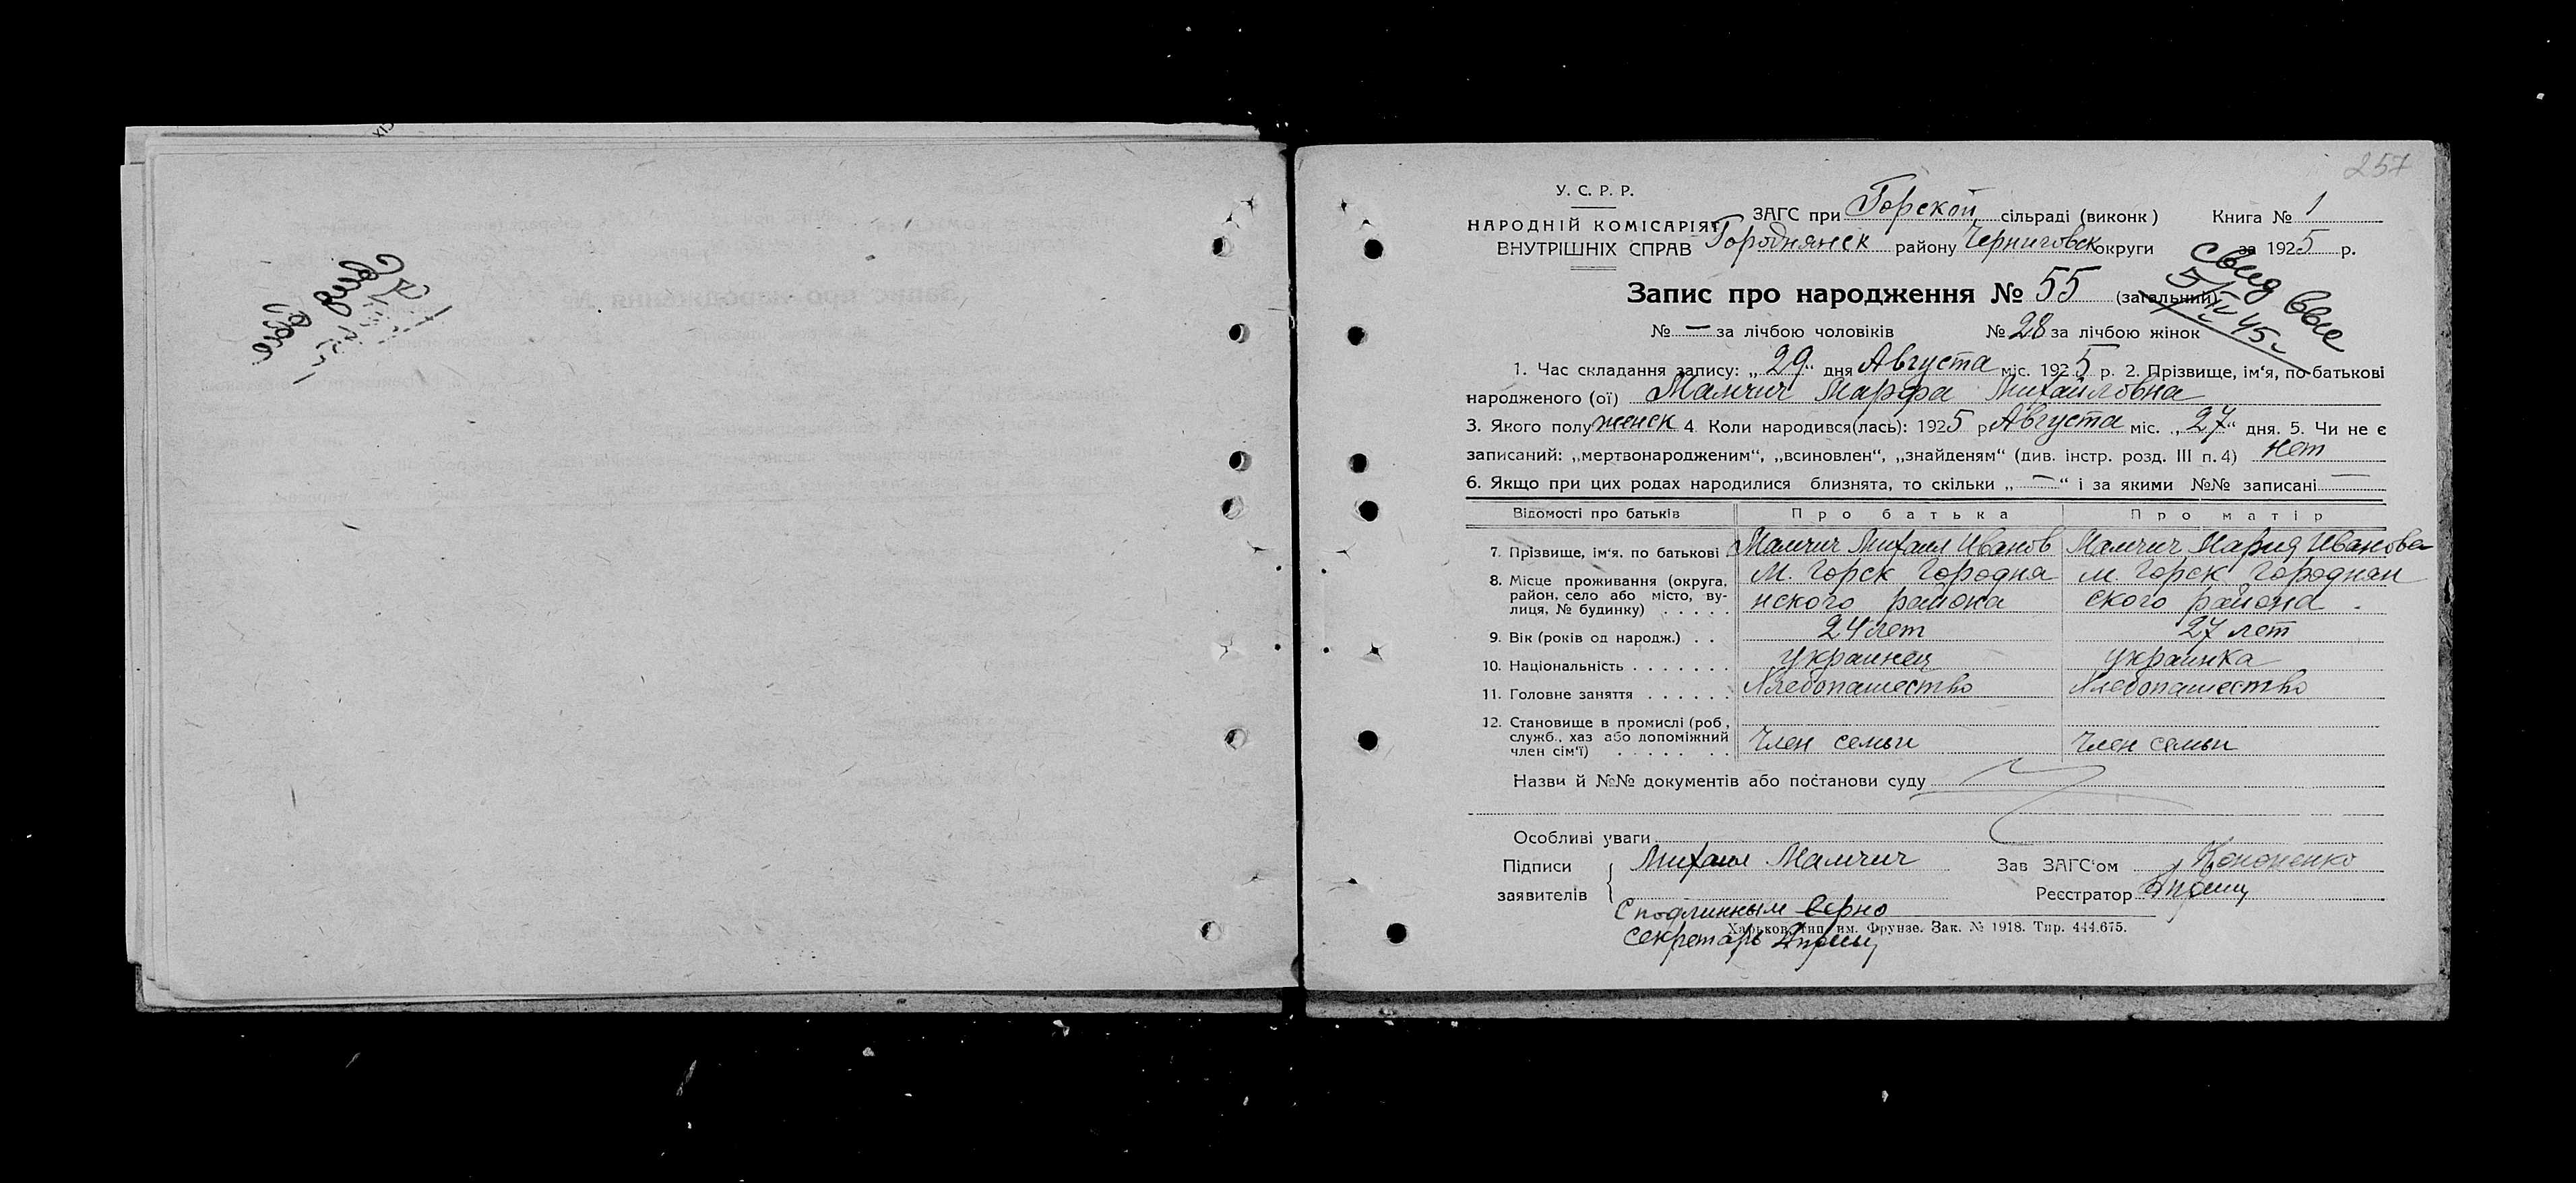 257
У. С. Р. Р.
НАРОДНІЙ КОМІСАРІЯТ
ВНУТРІШНІХ СПРАВ
ЗАГС при Горской сільраді (виконк)
Городнянск району Черниговск округи
Книга № 1
за 1925 р.
Запис про народження № 55 (загальний)
Свид выс
5/IV 45 г
№ — за лічбою чоловіків № 28 за лічбою жінок
1. Час складання запису: „29“ дня Августа міс. 1925 р. 2. Прізвище, ім‘я, по-батькові
народженого (ої) Мамчич Марфа Михайловна
3. Якого полу женск 4. Коли народився(лась): 1925 р Августа міс. „27“ дня. 5. Чи не є
записаний: „мертвонародженим“, „всиновлен“, „знайденям“ (див. інстр. розд. III п. 4) нет
6. Якщо при цих родах народилися близнята, то скільки „—“ і за якими №№ записані —
Відомості про батьків Про батька Про матір
7. Прізвище, ім‘я. по батькові Мамчич Михаил Иванов Мамчич Мария Иванова
8. Місце проживання (округа, м. Горск Городня м. Горск Городнян
район, село або місто, ву-
лиця, № будинку) . . . . . нского района ского района
9. Вік (років од народж.) . . 24 лет 27 лет
10. Національність . . . . . . . украинец украинка
11. Головне заняття . . . . . . Хлебопашество Хлебопашество
12. Становище в промислі (роб.,
служб., хаз або допоміжний
член сім‘ї) . . . . . . . Член семьи Член семьи
Назви й №№ документів або постанови суду
Особливі уваги
Підписи
заявителів
Михаил Мамчич
Зав ЗАГС‘ом Кононенко
Реєстратор
С подлинным верно
Харьков, тип. им. Фрунзе. Зак. № 1918. Тир. 444.675.
Секретарь